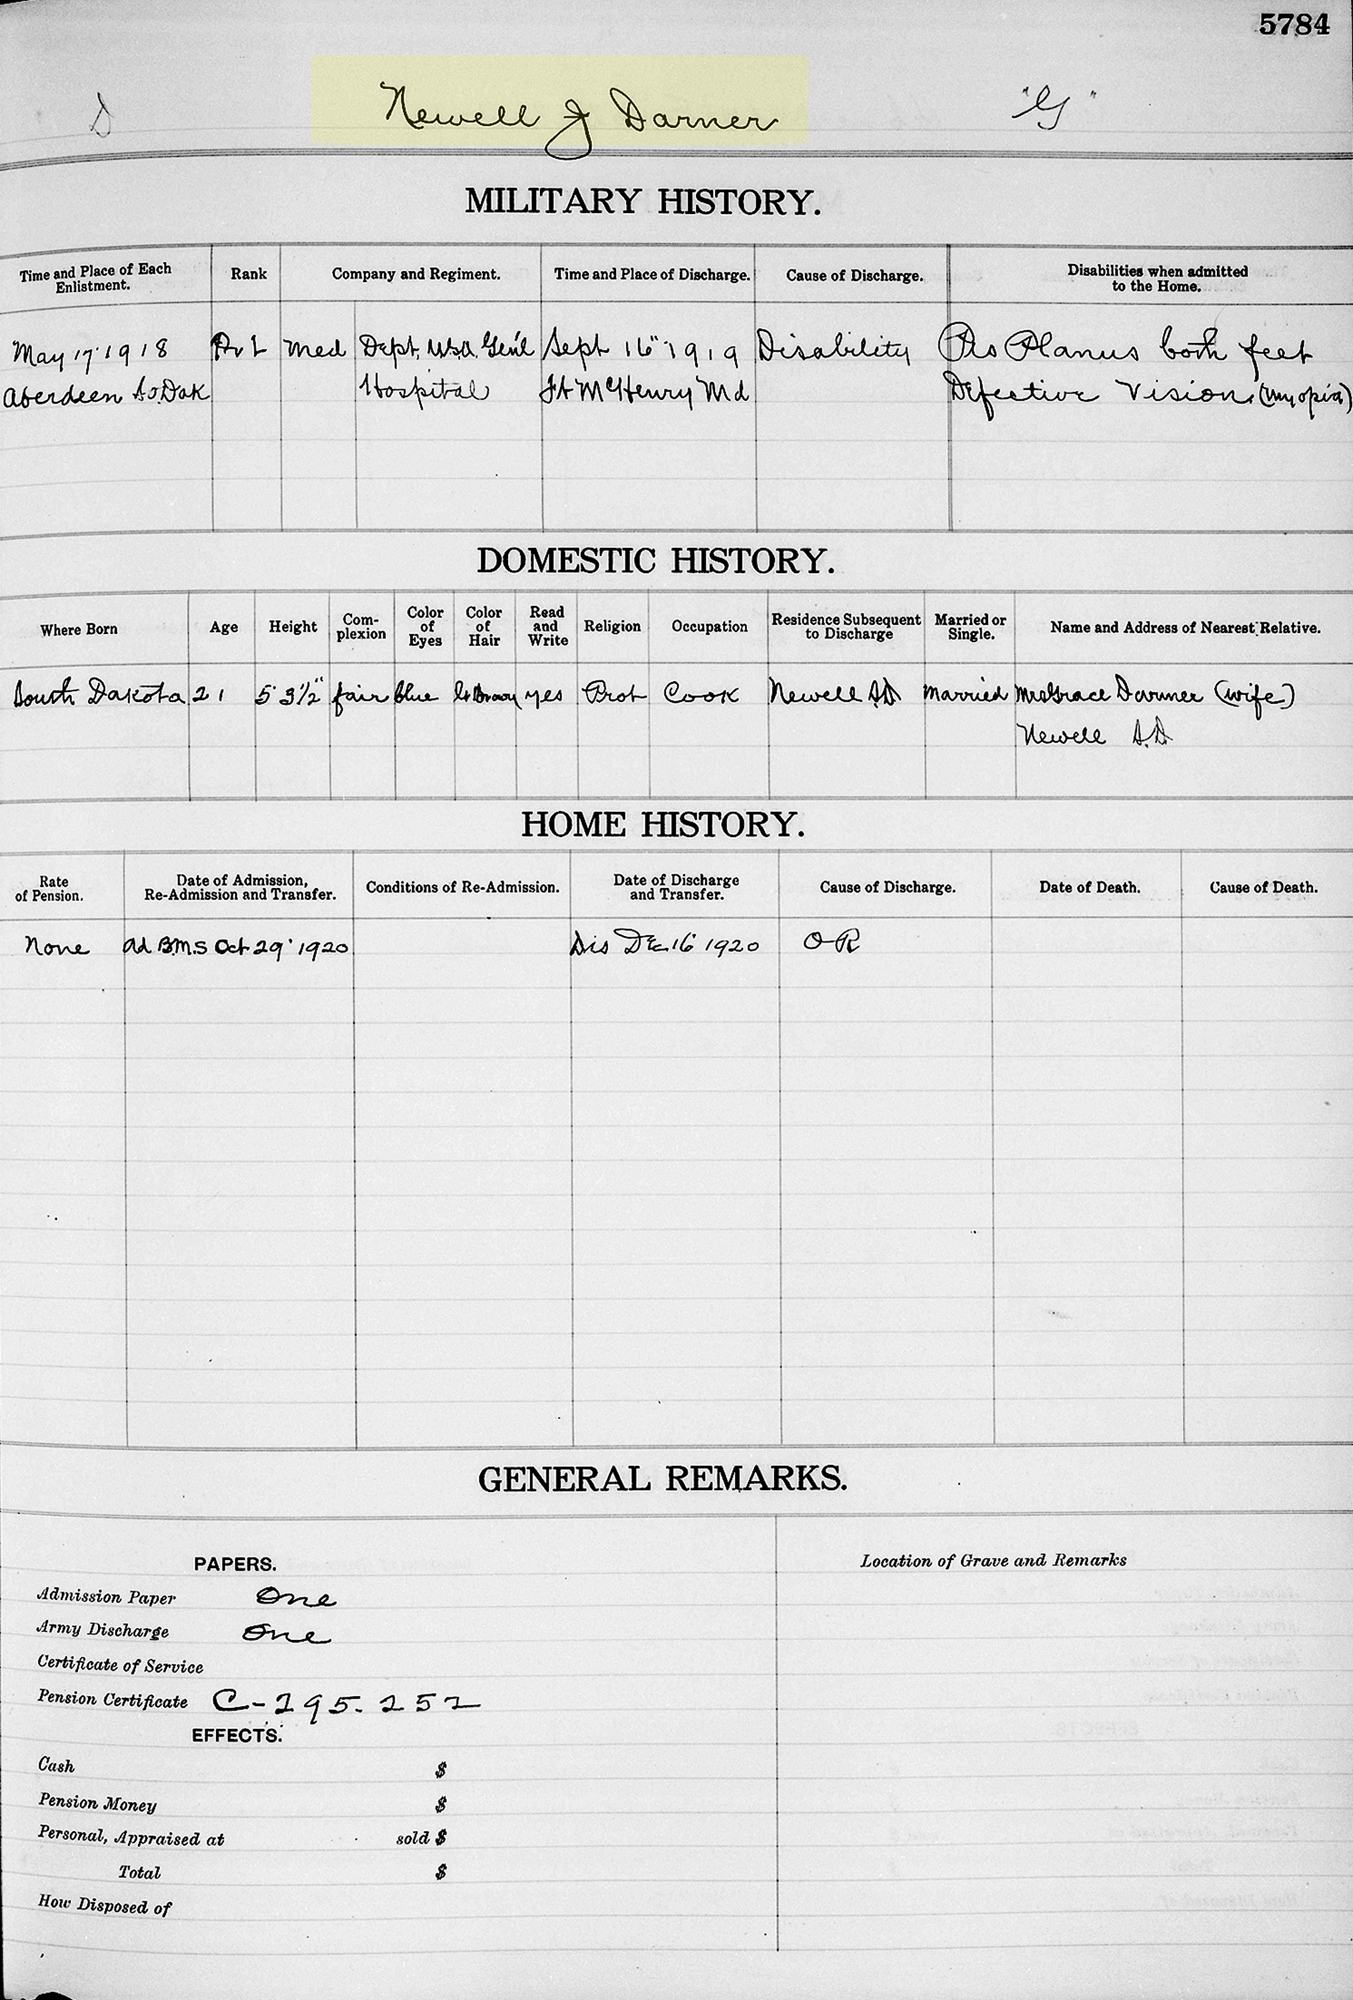 5784
D Newell J Darner "G"
MILITARY HISTORY.
Time and Place of Each Enlistment. Rank Company and Regiment. Time and Place of Discharge. Cause of Discharge. Disabilities when admitted to the Home.
May 17 1918 Pvt Med Dept. U.S.A. Gen'l Sept 16" 1919 Disability Pes Planus both feet
Aberdeen So. Dak Hospital Ft McHenry Md Defective Vision (myopia)
DOMESTIC HISTORY.
Where Born Age Height Com-plexion Color of Eyes Color of Hair Read and Write Religion Occupation Residence Subsequent to Discharge Married or Single. Name and Address of Nearest Relative.
South Dakota 21 5' 3½" fair blue lt Brown yes Prot Cook Newell S.D Married Mrs Grace Darner (wife)
Newell S.D.
HOME HISTORY.
Rate of Pension. Date of Admission, Re-Admission and Transfer. Conditions of Re-Admission. Date of Discharge and Transfer. Cause of Discharge. Date of Death. Cause of Death.
None Ad B.M.S Oct 29' 1920 Dis Dec 16 1920 O R
GENERAL REMARKS.
PAPERS. Location of Grave and Remarks
Admission Paper One
Army Discharge One
Certificate of Service
Pension Certificate C-295.252
EFFECTS.
Cash $
Pension Money $
Personal, Appraised at sold $
Total $
How Disposed of